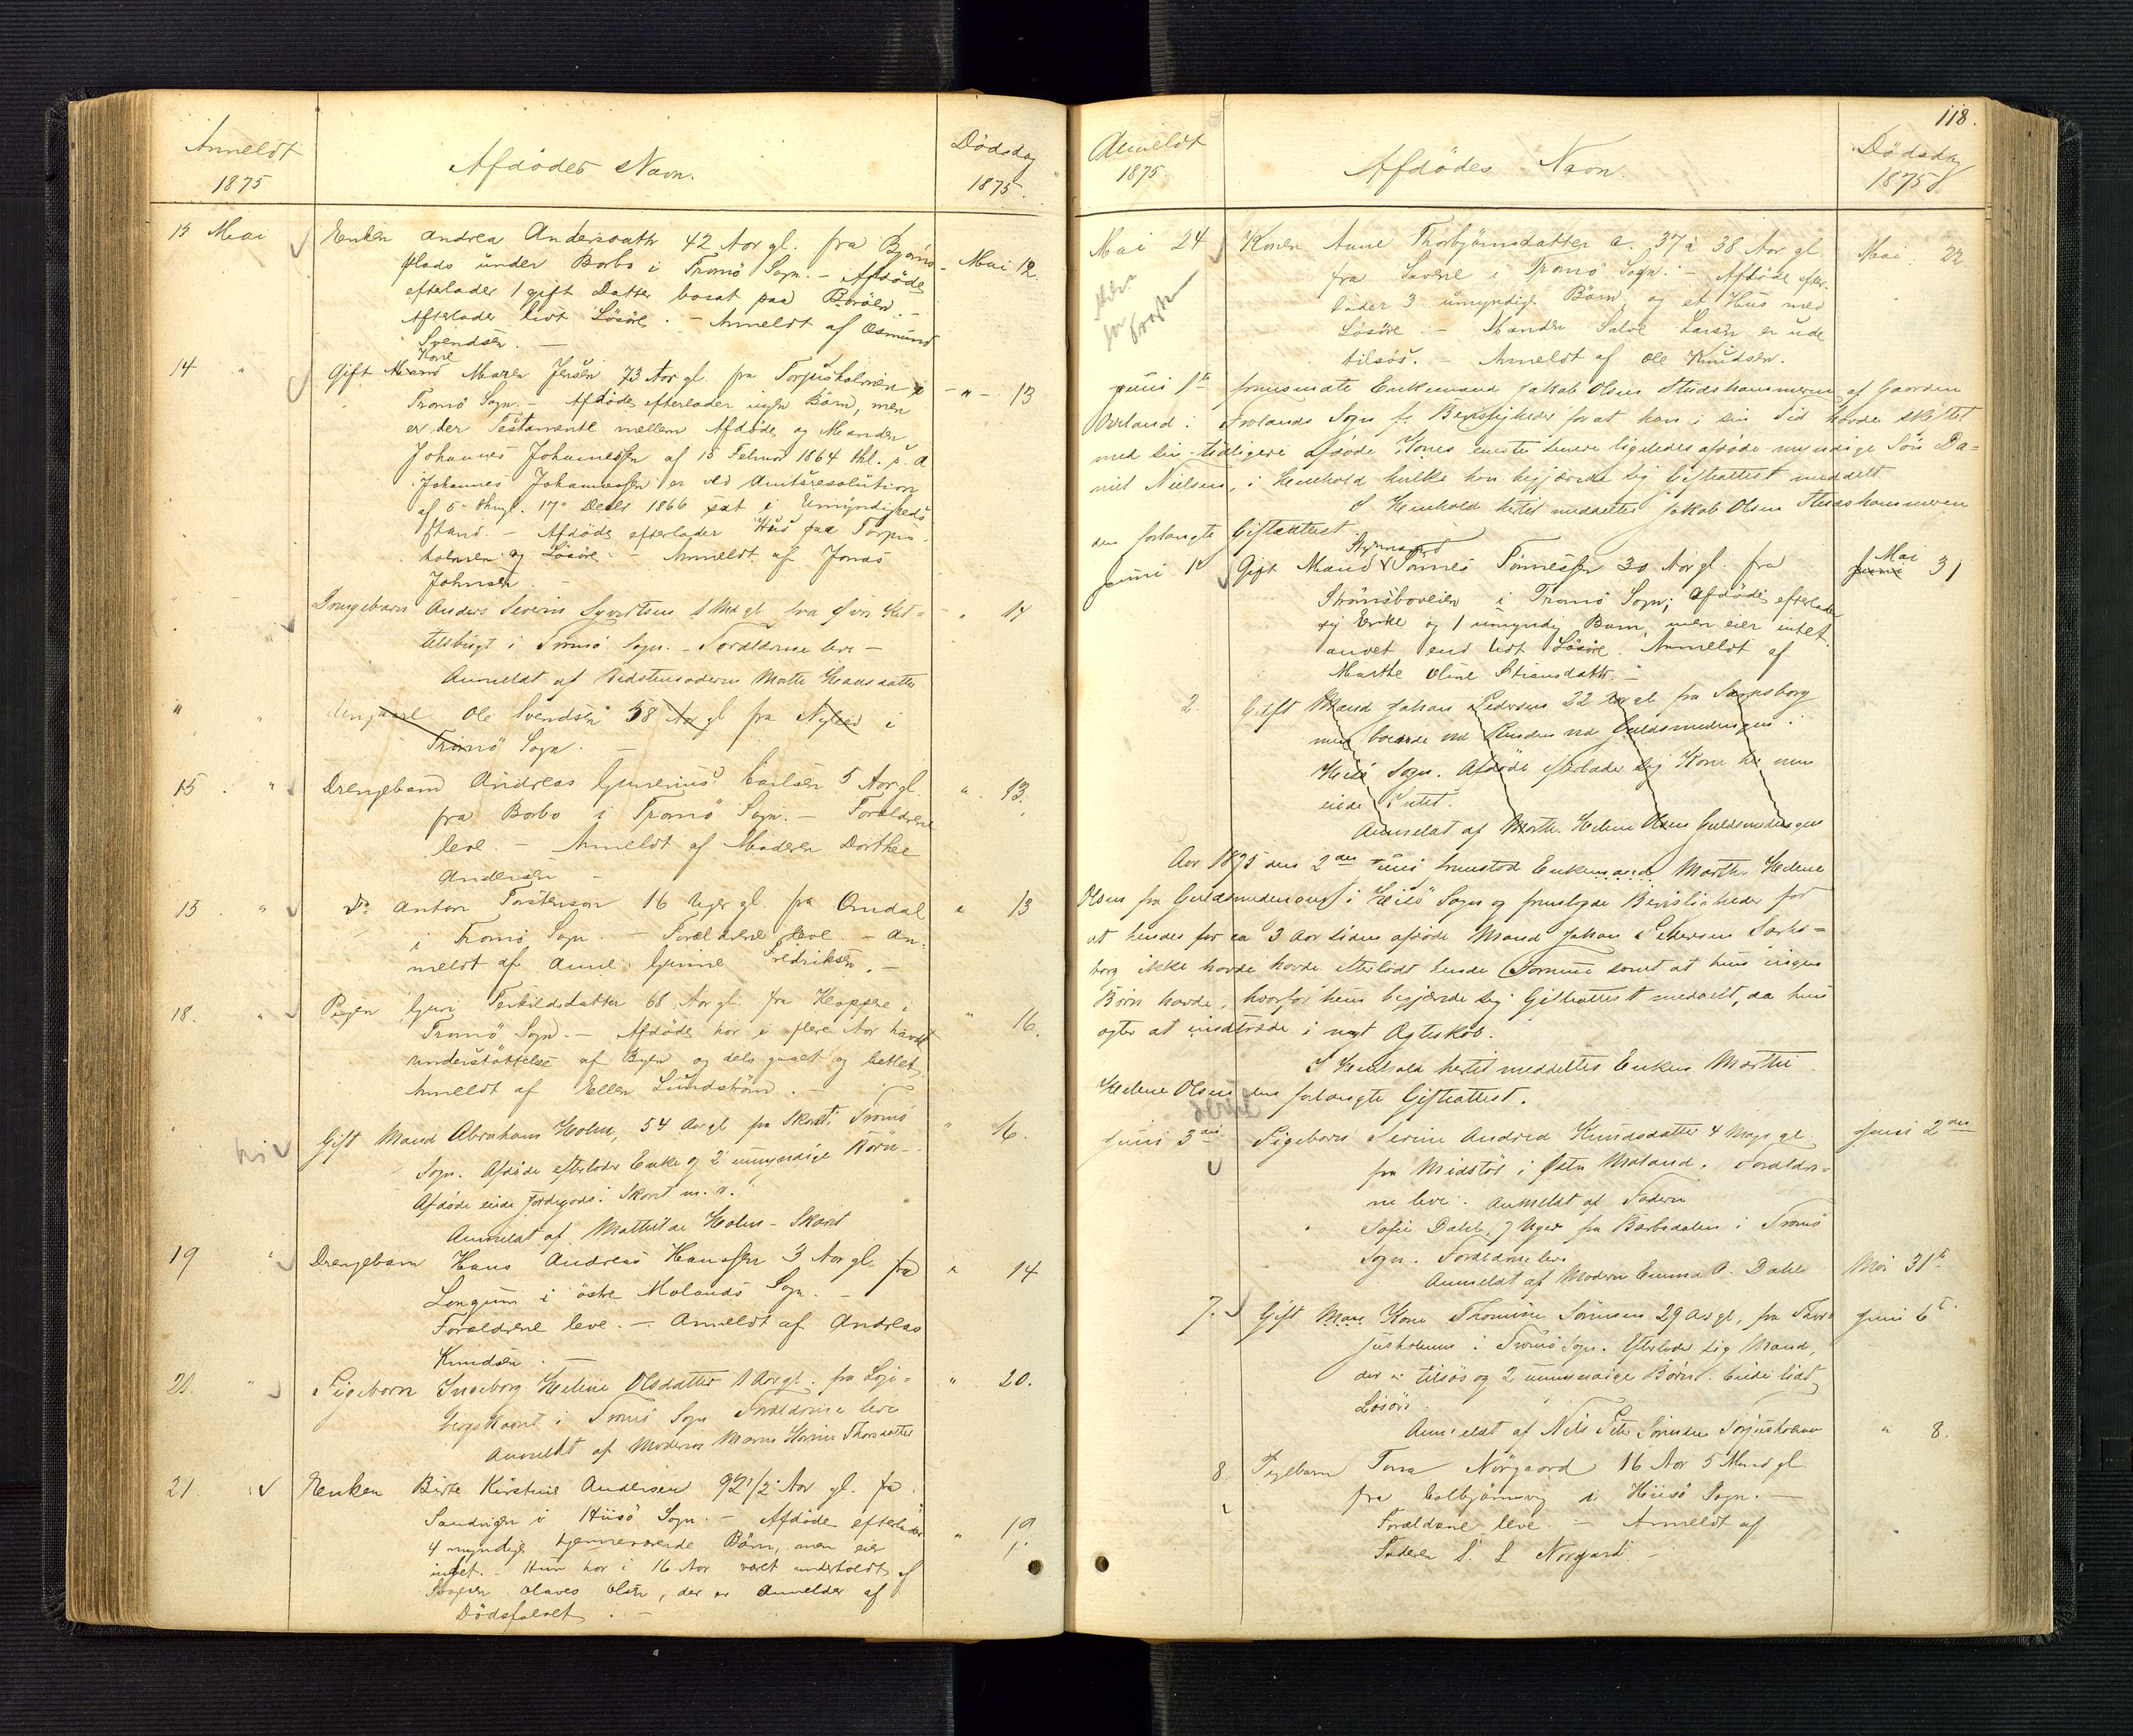 Anmeldt
1875
Afdødes Navn.
Dødsdag
1875.
13 Mai
Enken Andrea Andersdattr 42 Aar gl. fra Bjørns-
plads under Barbo i Tromö Sogn. – Afdøde
efterlader 1 gift Datter bosat paa Boröen. –
Efterlader lidt Lösöre. – Anmeldt af Osmund
Svendsen. –
Mai 12.
14 "
Gift Mand Kone Maren Jensen 73 Aar gl. fra Torjusholmen i
Tromö Sogn. – Afdøde efterlader ingen Börn, men
er der Testamente mellem Afdøde og Manden
Johannes Johannessen af 15 Februar 1864
Johannes Johannessen er ved Amtsresolution
af 5" thngl. 17" Decbr 1866 sat i Umyndigheds
Stand. – Afdøde efterlader Hus paa Torjus-
holmen og Lösöre. – Anmeldt af Jonas
Johnsen. –
" – 13
Drengebarn Anders Severin Syvertsen 1 Md gl fra Øvre Kit-
telsbugt i Tromö Sogn. – Forældrene leve –
Anmeldt af Bedstemoderen Marte Hansdatter
" 14
" "
Ungkarl Ole Svendsen 58 Aar gl fra Nylied i
Tromö Sogn. –
15 . "
Drengebarn Andreas Gunerius Carlsen 5 Aar gl.
fra Barbo i Tromö Sogn. – Forældrene
leve. – Anmeldt af Moderen Dorthee
Andersen –
" 13.
15 . "
Do Anton Torstenson 16 Uger gl. fra Omdal
i Tromö Sogn. – Forældrene leve. – An-
meldt af Anne Gunne Fredriksen. –
" 13
18. "
Pigen Guri Terkildsdatter 68 Aar gl. fra Kloppene i
Tromö Sogn. – Afdøde har i flere Aar havdt
understöttelse af Byen og dels gaaet og betlet.
Anmeldt af Ellen Lundström. –
" 16.
Gift Mand Abraham Holm, 54 Aar gl fra Skaret i Tromö
Sogn. Afdøde efterlader Enke og 2 umyndige Börn –
Afdøde eiede Jordegods i Skaret m. v.
Anmeldt af Mathilde Holm – Skaret
" 16.
19 "
Drengebarn Hans Andreas Hanssen 3 Aar gl. fra
Longum i östre Molands Sogn. –
Forældrene leve. – Anmeldt af Andreas
Knudsen. –
" 14
20. "
Pigebarn Ingeborg Heline Olsdatter 1 Aar gl. fra
i Tromö Sogn Forældrene leve
Anmeldt af Moderen Maren Thorsdatter
" 20.
21.
Enken Birte Kirstine Andersen 92 1/2 Aar gl. fra
Sandvigen i Hiisö Sogn. – Afdøde efterlader
4 myndige hjemmeværende Börn, men eier
intet. – Hun har i 16 Aar været underholdt af
Olaves Olsen, der er Anmelder af
Dødsfaldet. –
" 19
118.
Anmeldt
1875.
Afdødes Navn.
Dødsdag
1875
Mai 24
Konen Anne Thorbjørnsdatter c. 37 à 38 Aar gl.
fra Savene i Tromö Sogn. – Afdøde efter-
lader 3 umyndige Börn, og et Hus med
Lösöre. – Manden Salve Larsen er ude
tilsøs. – Anmeldt af Ole Knudsen.
Mai. 22
Juni 1ste fremviste Enkemand Jakob Olsen Studshammeren af Gaarden
Overland i Frolands Sogn Bevisligheder for at han i sin Tid havde skiftet
med sin tidligere afdøde Kones eneste senere ligeledes afdøde myndige Sön Da-
niel Nielsen, i Henhold hvilke han begjærede sig Giftattest meddelt
I Henhold hertil meddeltes Jakob Olsen Studshammeren
den forlangte Giftattest.
Juni 1te
Gift Mand Styrmand Tönnes Tönnessen 30 Aar gl. fra
Strömsboveien i Tromö Sogn; Afdøde efterlader
sig Enke og 1 umyndig Barn, men eier intet
andet end lidt Lösöre. Anmeldt af
Marthe Oline Stiansdattr. –
Juni Mai 31
2.
Gift Mand Johan Pedersen 22 Aar gl fra Sarpsborg
men boende ved Guldsmedengen i
Hiisö Sogn. Afdøde efterlader sig Kone
eiede Intet.
Anmeldt af Marthe Helene Olsen Guldsmedengen
Aar 1875 den 2den Juni fremstod Enkemand Marthe Helene
Olsen fra Guldsmedengen i Hiisö Sogn og fremlagde Bevisligheder for
at hendes for ca 3 Aar siden afdøde Mand Johan Pedersen Sarps-
borg ikke havde havde efterladt hende Formue samt at hun ingen
Börn havde, hvorfor hun begjærede sig Giftattest meddelt, da hun
agter at indtræde i nyt Ægteskab.
I Henhold hertil meddeltes Enken Marthe
Helene Olsen den forlangte Giftattest.
Juni 3die
Pigebarn Serine Andrea Knudsdatter 4 Mdr gl
fra Midstöl i Østre Moland. Forældre-
ne leve. Anmeldt af Faderen
Juni 2den
Sofie Dahl 7 Uger fra Barbodalen i Tromö
Sogn. Forældrene leve.
Anmeldt af Moderen Emma A. Dahl
Mai 31te
7.
Gift Mand Kone Thomine Sörensen 29 Aar gl, fra Thor-
jusholmen i Tromö Sogn. Efterlader sig Mand,
der er tilsøs og 2 umyndige Börn. Eiede lidt
Lösöre.
Anmeldt af Nils Peter Sörensen Torjusholmen
Juni 6te.
8
Pigebarn Tora Nörgaard 16 Aar 5 Mnd gl.
fra Colbjörnsvig i Hiisö Sogn. –
Forældrene leve. – Anmeldt af
Faderen S. L. Norgard. –
" 8.